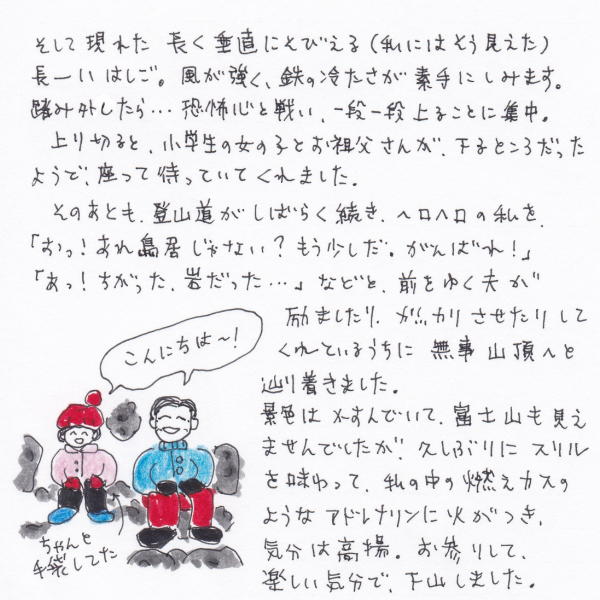 そして現れた 長く垂直にそびえる(私にはそう見えた)
長ーいはしご。風が強く、鉄の冷たさが素手にしみます。
踏み外したら…恐怖心と戦い、一段一段上ることに集中。
上り切ると、小学生の女の子とお祖父さんが、下るところだった
ようで、座って待っていてくれました。
そのあとも、登山道がしばらく続き、ヘロヘロの私を、
「おっ!あれ鳥居じゃない?もう少しだ。がんばれ!」
「あっ!ちがった、岩だった…」などと、前をゆく夫が
励ましたり、ガッカリさせたりして
くれているうちに 無事山頂へと
辿り着きました。
景色はかすんでいて、富士山も見え
ませんでしたが、久しぶりにスリル
を味わって、私の中の燃えカスの
ようなアドレナリンに火がつき、
気分は高揚。お参りして、
楽しい気分で、下山しました。
こんにちは〜!
ちゃんと
手袋してた